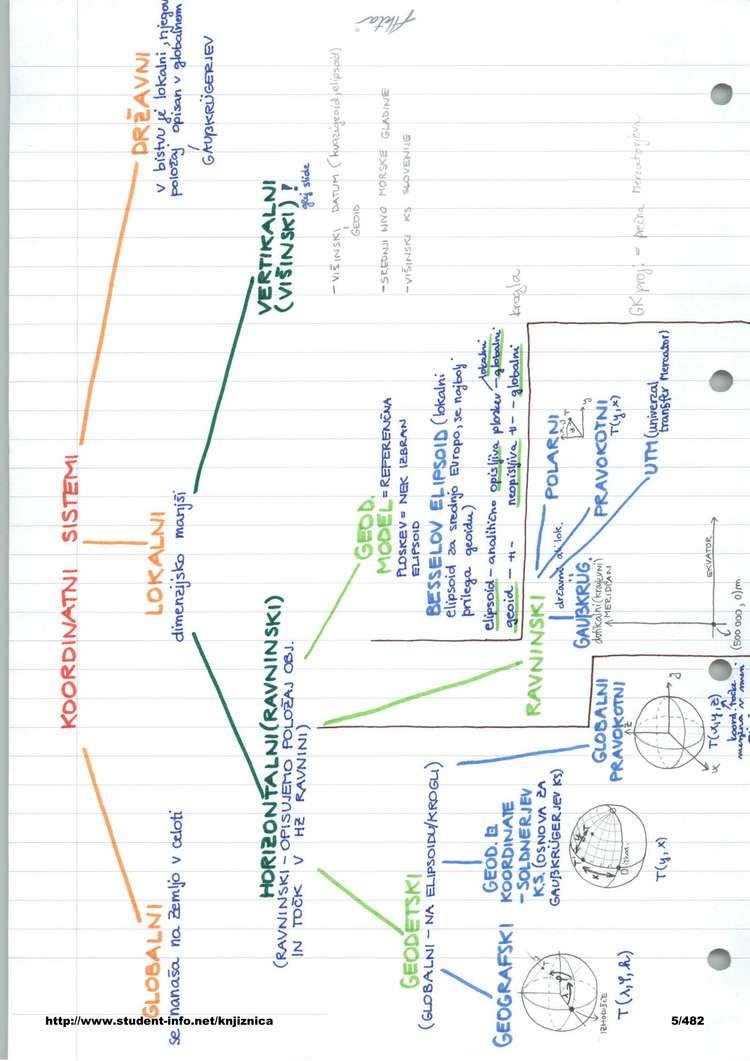 KOORDINATNI SISTEMI
GLOBALNI
se nanaša na zemljo v celoti
LOKALNI
dimenzijsko manjši
DRŽAVNI
v bistvu je lokalni, njegov
položaj opisan v globalnem
GAUßKRÜGERJEV
HORIZONTALNI (RAVNINSKI)
(RAVNINSKI - OPISUJEMO POLOŽAJ OBJ.
IN TOČK V HZ RAVNINI)
VERTIKALNI
(VIŠINSKI)!
glej slide
- VIŠINSKI DATUM (kvazigeoid, elipsoid)
GEOID
- SREDNJI NIVO MORSKE GLADINE
- VIŠINSKI KS SLOVENIJE
GEODETSKI
(GLOBALNI - NA ELIPSOIDU/KROGLI)
GEOD.
MODEL = REFERENČNA
PLOSKEV = NEK IZBRAN
ELIPSOID
BESSELOV ELIPSOID (lokalni
elipsoid za srednjo Evropo, se najbolj
prilega geoidu)
elipsoid - analitično opisljiva ploskev - lokalni
- globalni
geoid - 11 - neopisljiva - 11 - - globalni
krogla
GEOGRAFSKI
IZHODIŠČE
T(λ, φ, h)
GEOD. 
KOORDINATE
- SOLDNERJEV
KS. (OSNOVA ZA
GAUßKRÜGERJEV KS)
T(y, x)
GLOBALNI
PRAVOKOTNI
z
y
x
T(x, y, z)
RAVNINSKI
državni ali lok.
GAUßKRÜG
dotikalni (krajevni)
MERIDIJAN
EKVATOR
(500 000, 0)m
POLARNI
T
y
PRAVOKOTNI
T(y, x)
UTM (univerzal
transfer Mercator)
GK proj. = prečna Mercatorjeva
http://www.student-info.net/knjiznica
5/482